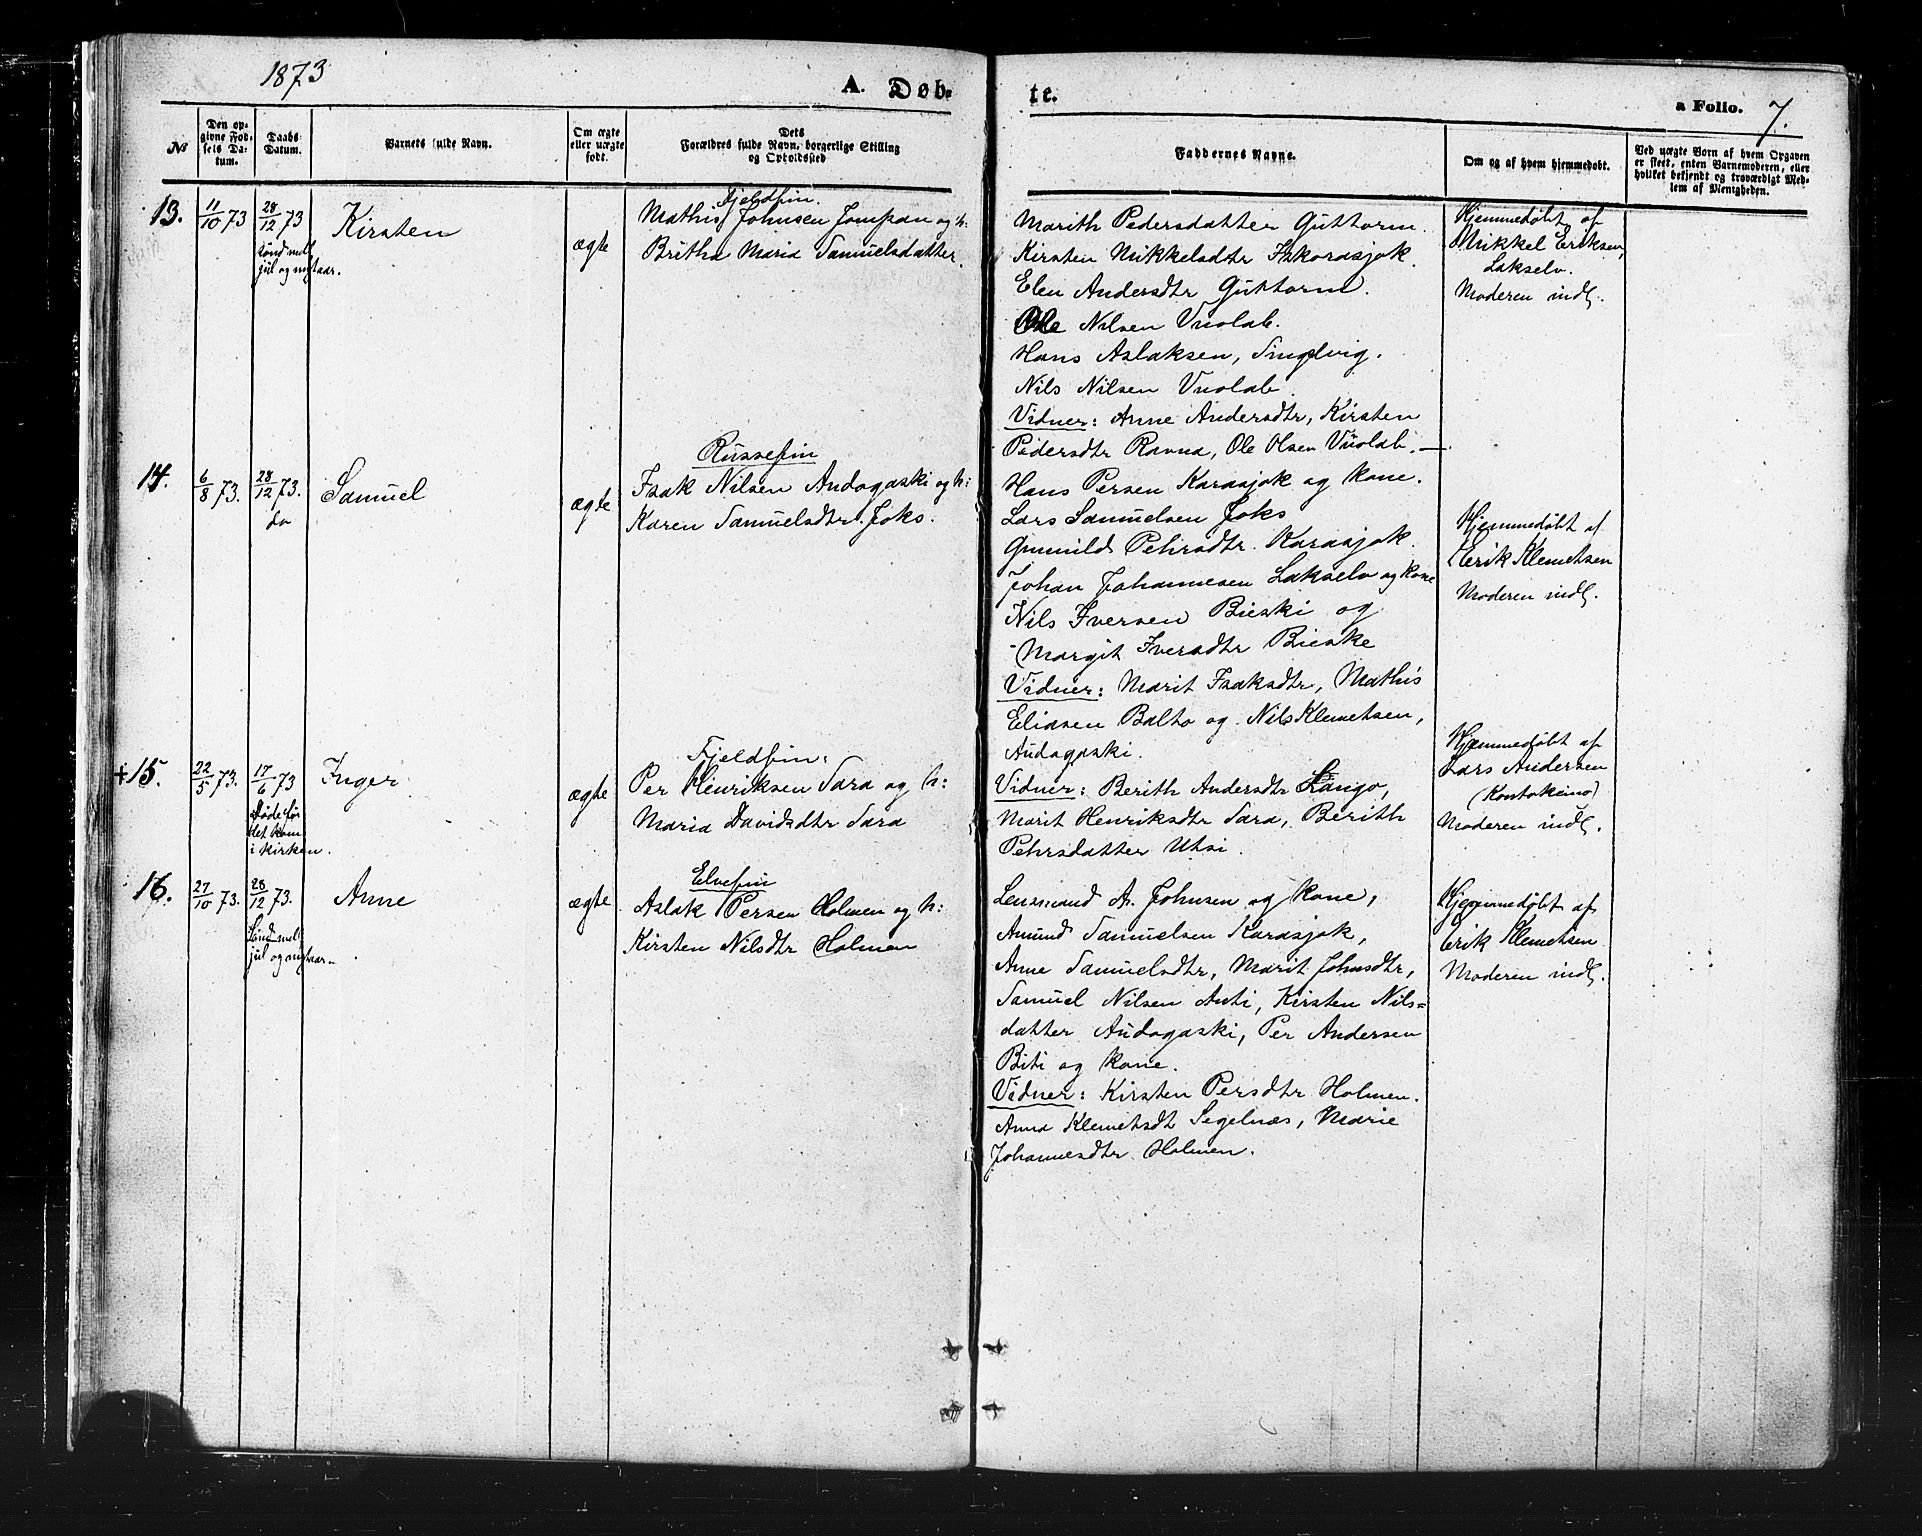 1873
A. Døb-
te.
a Folio. 7.
No
Den op-
givne Fød-
sels Da-
tum.
Daabs-
Datum.
Barnets fulde Navn.
Om ægte
eller uægte
født.
Dets
Forældres fulde Navn, borgerlige Stilling
og Opholdssted
Faddernes Navne.
Om og af hvem hjemmedøbt.
Ved uægte Børn af hvem Opgaven
er skeet, enten Barnemoderen, eller
hvilket bekjendt og troværdigt Med-
lem af Menigheden.
13.
11/10 73
28/12 73
Sønd. mell.
jul og nytaar.
Kirsten
ægte
Fjeldfin.
Mathis Johnsen Jompan og h:
Britha Maria Samuelsdatter.
Marith Pedersdatter Guttorm.
Kirsten Mikkelsdtr Iskorasjok.
Elen Andersdtr Guttorm.
Ole Nilsen Vuolab.
Hans Aslaksen, Smedvig.
Nils Nilsen Vuolab
Vidner: Anne Andersdtr, Kirsten
Pedersdtr Ravna, Ole Olsen Vuolab. —
Hjemmedøbt af
Mikkel Eriksen,
Lakselv.
Moderen indl.
14.
6/8 73.
28/12 73.
do
Samuel
ægte
Russefin
Isak Nilsen Andagaski og h:
Karen Samuelsdtr. Joks.
Hans Persen Karasjok og kone.
Lars Samuelsen Joks
Gunnild Pehrsdtr. Karasjok.
Johan Johannesen Lakselv og kone
Nils Iversen Bieski og
Margit Iversdtr Bieske
Vidner: Marit Isaksdtr, Mathis
Eliasen Balto og Nils Klemetsen,
Audagaski.
Hjemmedøbt af
Erik Klemetsen
Moderen indl.
+15.
22/5 73.
17/6 73
Døde før
det kom
i kirken.
Inger
ægte
Fjeldfin:
Per Henriksen Sara og h:
Maria Davidsdtr Sara
Vidner: Berith Andersdtr Lango,
Marit Henriksdtr Sara, Berith
Pehrsdatter Utsi.
Hjemmedøbt af
Lars Andersen
(Koutokeino)
Moderen indl.
16.
27/10 73.
28/12 73.
Sønd mell
jul og nytaar.
Anne
ægte
Elvefin
Aslak Persen Holmen og h:
Kirsten Nilsdtr Holmen
Lensmand A. Johnsen og kone,
Amund Samuelsen Karasjok,
Anne Samuelsdtr, Marit Johnsdtr,
Samuel Nilsen Anti, Kirsten Nils=
datter Audagaski, Per Andersen
Biti og kone.
Vidner: Kirsten Persdtr Holmen.
Anna Klemetsdt Segelnæs, Marie
Johannesdtr Holmen.
Hjemmedøbt af
Erik Klemetsen
Moderen indl.